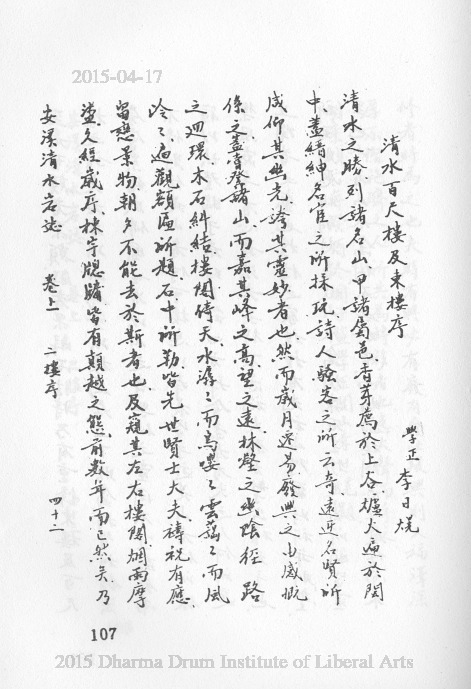 2015-04-17
清水百尺樓及東樓序
學正 李日煜
清水之勝、列諸名山、甲諸屬邑、香芽薦於上谷、爐火遍於閩
中、蓋縉紳名臣之所採玩、詩人騷客之所云奇、遠近名賢所
咸仰其幽光、誇其靈妙者也、然而歲月遞易、廢興之由、感慨
係之、蓋嘗登諸山、而嘉其峰之高、望之遠、林壑之幽、陰徑路
之迴環、木石糾結、樓閣倚天、水潺々而鳥嚶々、雲藹々而風
冷々、遍觀額匾所題、石十所勒、皆先世賢士大夫、禱祝有應、
留戀景物、朝夕不能去於斯者也、及窺其左右樓閣、烟雨摩
盪、久經歲序、棟宇牕牗、皆有顛越之態、前數年而已然矣、乃
安溪清水岩誌 卷上 二樓序 四十二
107
2015 Dharma Drum Institute of Liberal Arts